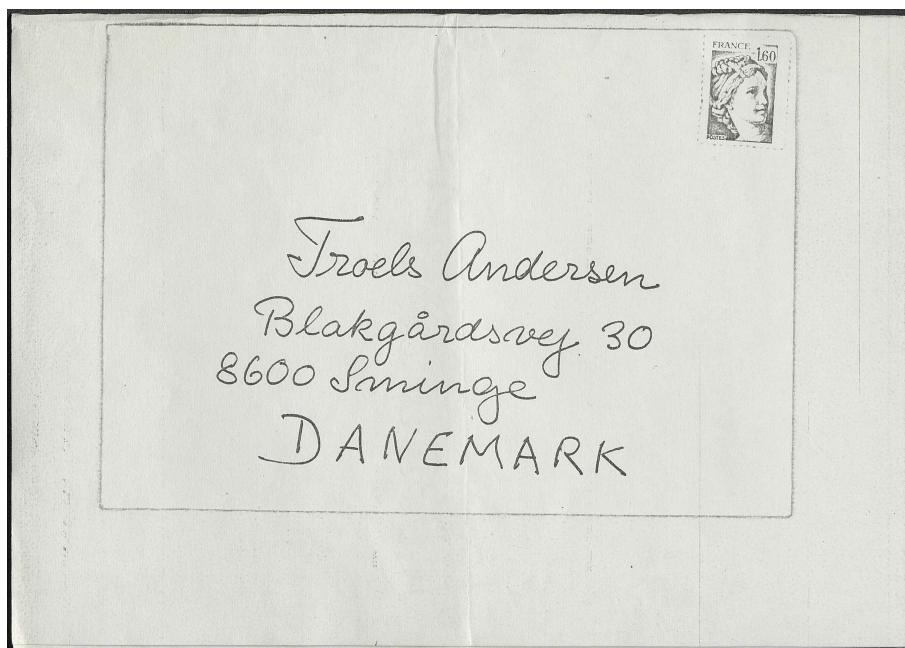 FRANCE
1,60
POSTES
Troels Andersen
Blakgårdsvej 30
8600 Sminge
DANEMARK